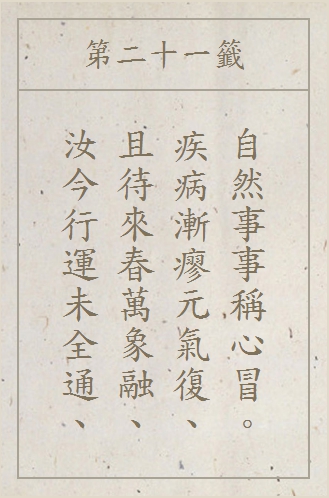 第二十一籤
汝今行運未全通、
且待來春萬象融、
疾病漸瘳元氣復、
自然事事稱心冒。